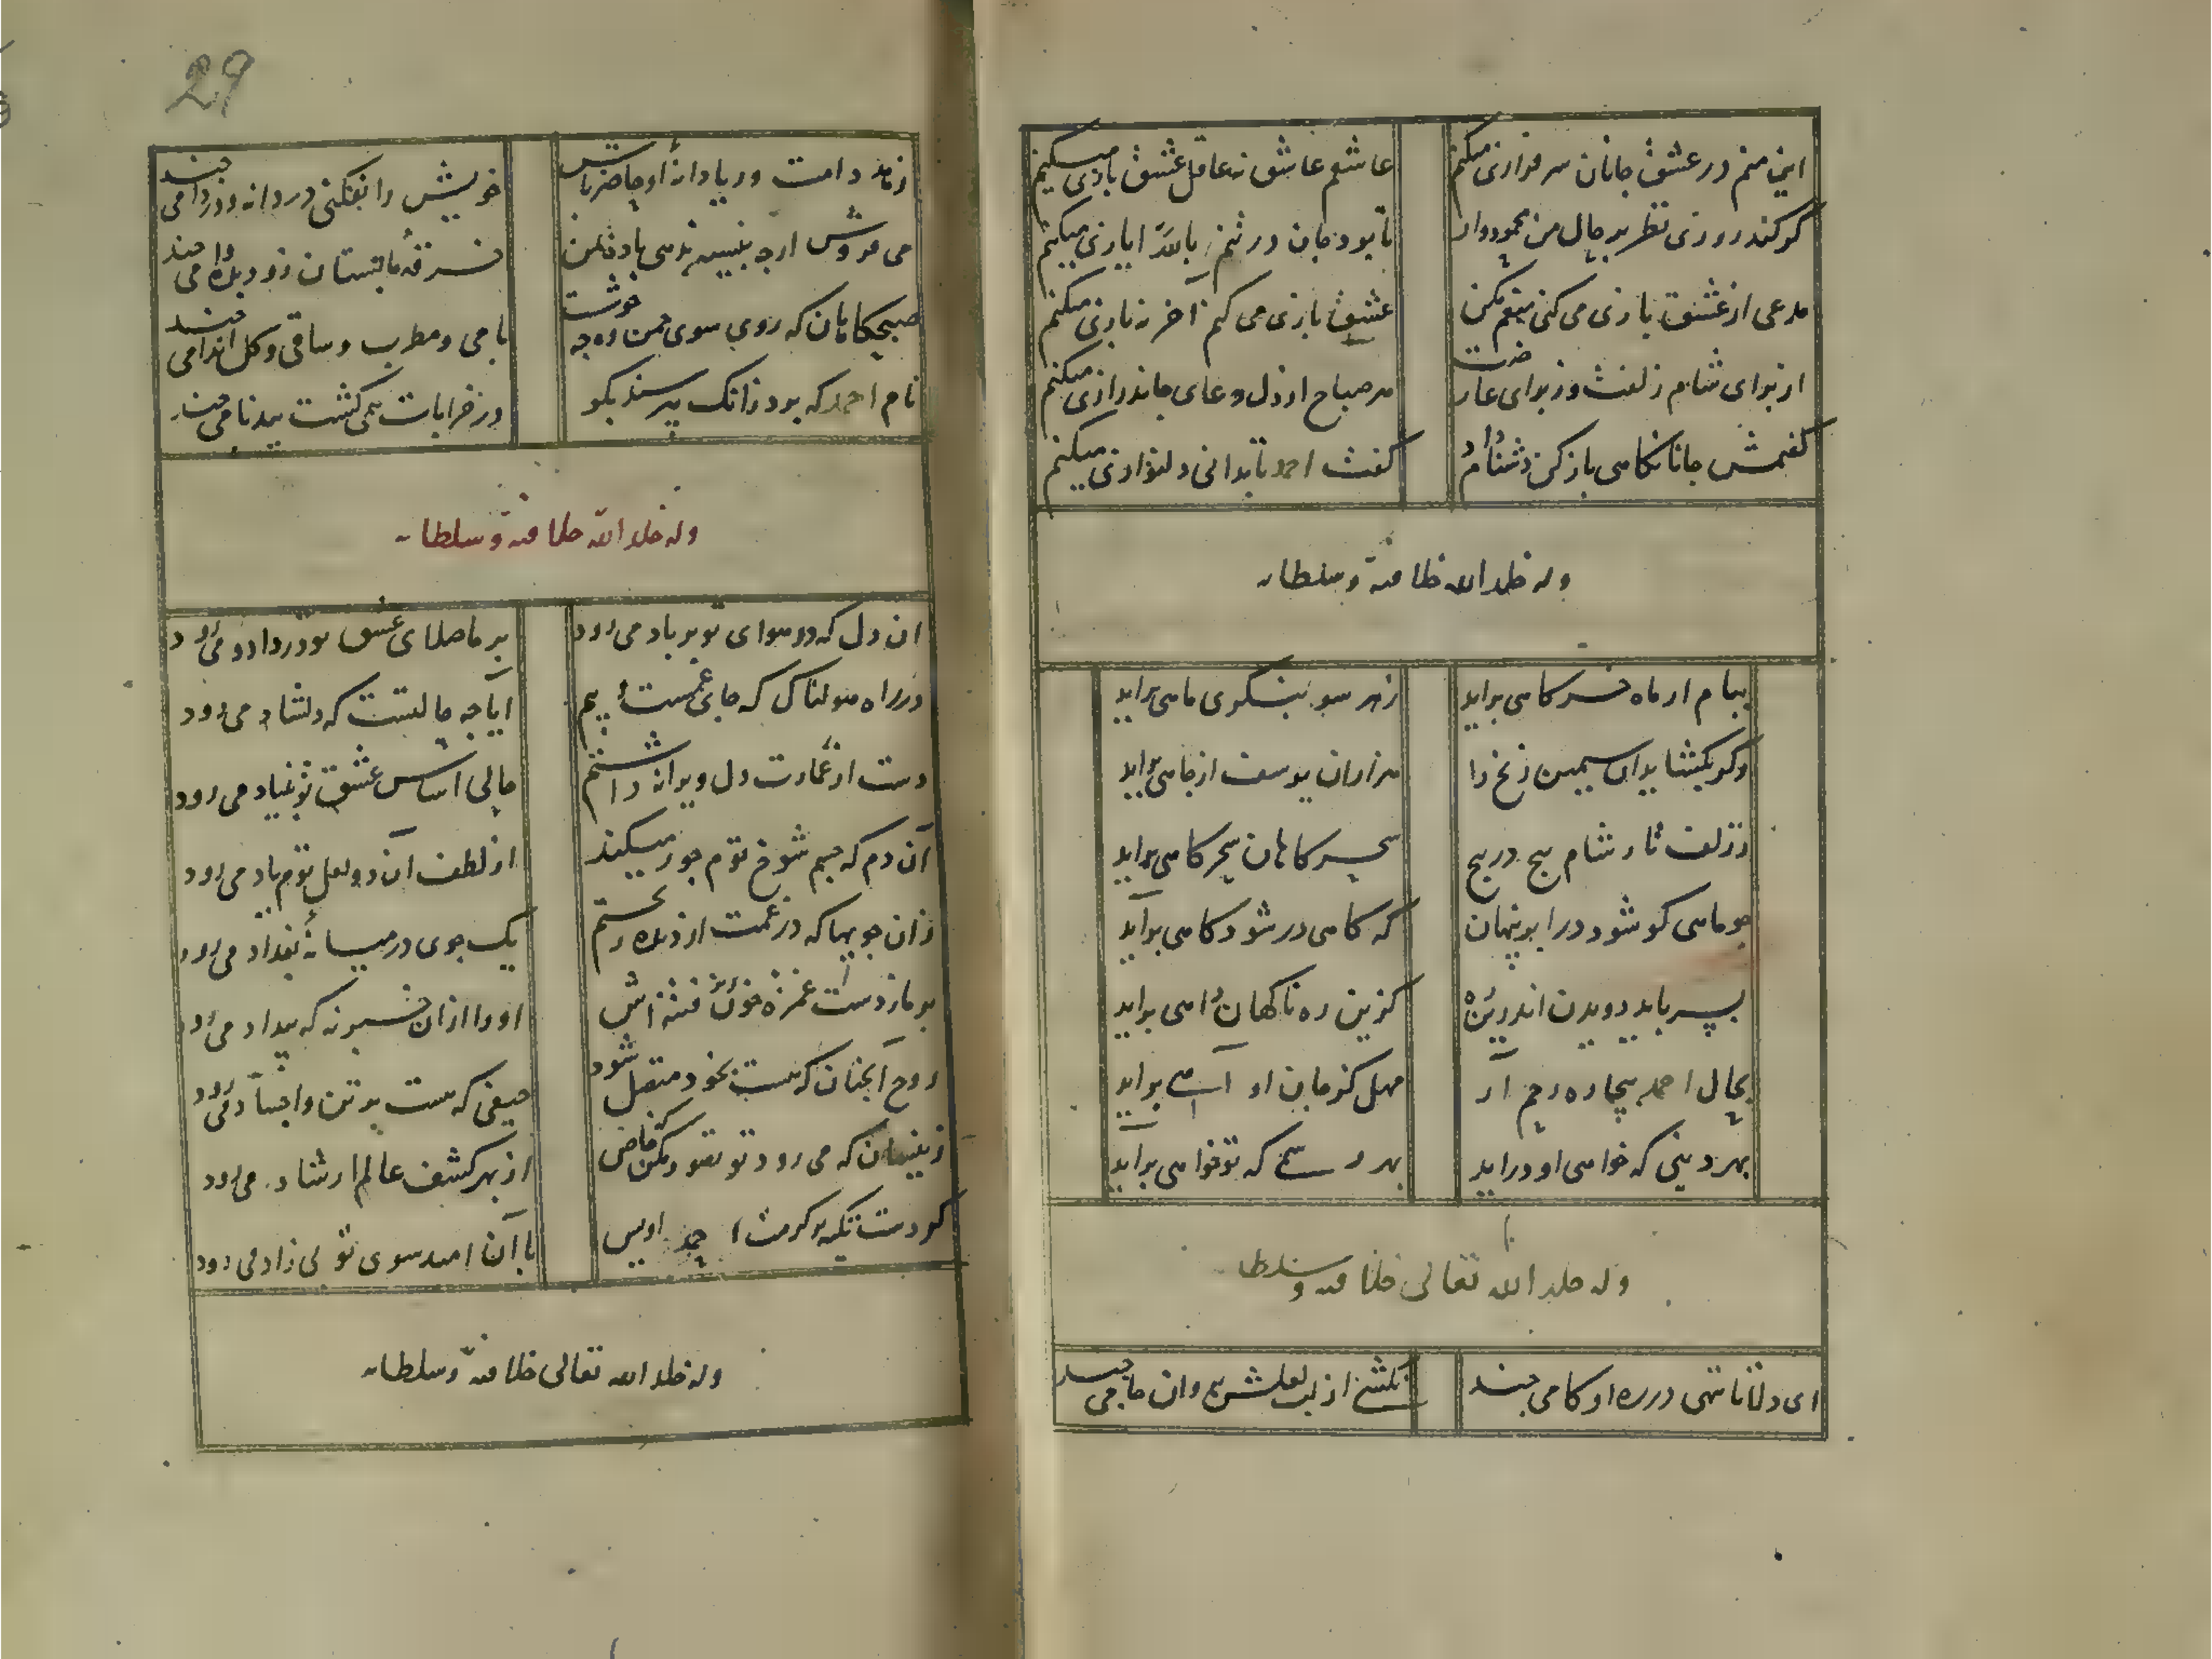 این منم در عشق جانان سرفرازی میکنم
عاشقم عاشق نه عاقل عشق بازی میکنم
کر کند روزی نظر بر حال من محمودوار
تا بود جان در تنم بالله ایازی میکنم
مدعی از عشق بازی می کنی منعم مکن
عشق بازی می کنم آخر نه بازی میکنم
از برای شام زلفت وز برای عارضت
هر صباح از دل دعای جاندرازی میکنم
کفتمش جانا نکاهی باز کن دشنام داد
کفت احمد تا بدانی دلنوازی میکنم
وله خلد الله خلافته وسلطانه
ببام ار ماه خرکاهی براید
زهر سو بنکری ماهی براید
وکر بکشاید ان سیمین زنخ را
هزاران یوسف از چاهی براید
ز زلف تار شام پیچ در پیچ
سحرکاهان سحرکاهی براید
چو ماهی کو شود در ابر پنهان
که کاهی در شود کاهی برآید
بسر باید دویدن اندرین ره
کزین ره ناکهان راهی براید
بحال احمد بیچاره رحم آر
مهل کز جان او آهی براید
بهر دینی که خواهی او دراید
بهر رسمی که تو خواهی براید
وله خلد الله تعالی خلافته وسلطانه
ای دل تا ننهی در ره او کامی چند
نکشی از لب لعلش روان جامی چند
دامت در یا دانهٔ او حاضر باش
خویش را نفکنی در دانه و در دامی چند
می فروش ارچه بنسیه ندهی باده بمن
خرقهٔ ما بستان زود بده وامی چند
صبحکاهان که روی سوی چمن وه چه خوشست
با می و مطرب و ساقی و کل اندامی چند
نام احمد که بود زانک بپرسند بکو
در خرابات همی کشت بدنامی چند
وله خلد الله خلافته وسلطانه
ان دل که در هوای تو بر باد می رود
بر ما صلای عشق تو در داد و می رود
در راه هولناک که جای غمست و بیم
ایا چه حالتست که دلشاد می رود
دست از عمارت دل ویرانه داشتم
حالی اساس عشق تو بنیاد می رود
آن دم که چشم شوخ توم جور میکند
از لطف آن دو لعل توم یاد می رود
زان جویها که در غمت از دیده رستم
یک جوی در میانهٔ بغداد می رود
او را ازان خبر نه که بیداد می رود
روح آنچنان که هست بخود منتقل شود
حیفی که هست بر تن و اجساد می رود
زینسان که می رود تو تصور مکن که خاص
از بهر کشف عالم ارشاد می رود
کردست تکیه بر کرمت احمد اویس
با آن امید سوی تو بی زاد می رود
وله خلد الله تعالی خلافته وسلطانه
29